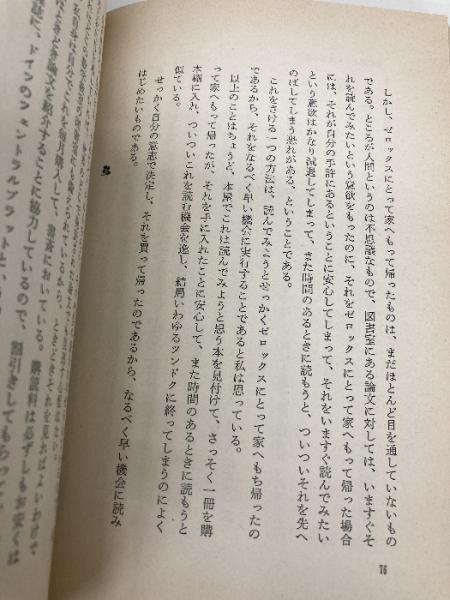 しかし、ゼロックスにとって家へもって帰ったものは、まだほとんど目を通していないもの
である。ところが人間というのは不思議なもので、図書室にある論文に対しては、いますぐそ
れを読んでみたいという意欲をもったのに、それをゼロックスにとって家へもって帰った場合
には、それが自分の手許にあるということに安心してしまって、それをいますぐ読んでみたい
という意欲はかなり減退してしまって、また時間のあるときに読もうと、ついついそれを先へ
のばしてしまう恐れがある、ということである。
これをさける一つの方法は、読んでみようとせっかくゼロックスにとって家へもち帰ったの
であるから、それをなるべく早い機会に実行することであると私は思っている。
以上のことはちょうど、本屋でこれは読んでみようと思う本を見付けて、さっそく一冊を購
って家へもって帰ったが、それを手に入れたことに安心して、また時間のあるときに読もうと
本棚に入れ、ついついこれを読む機会を逸し、結局いわゆるツンドクに終ってしまうのによく
似ている。
せっかく自分の意志で決定し、それを買って帰ったのであるから、なるべく早い機会に読み
はじめたいものである。
76
書斎においている。
論文を紹介することに協力しているので、割引きしてもらって
購読料は必ずしもお安くは